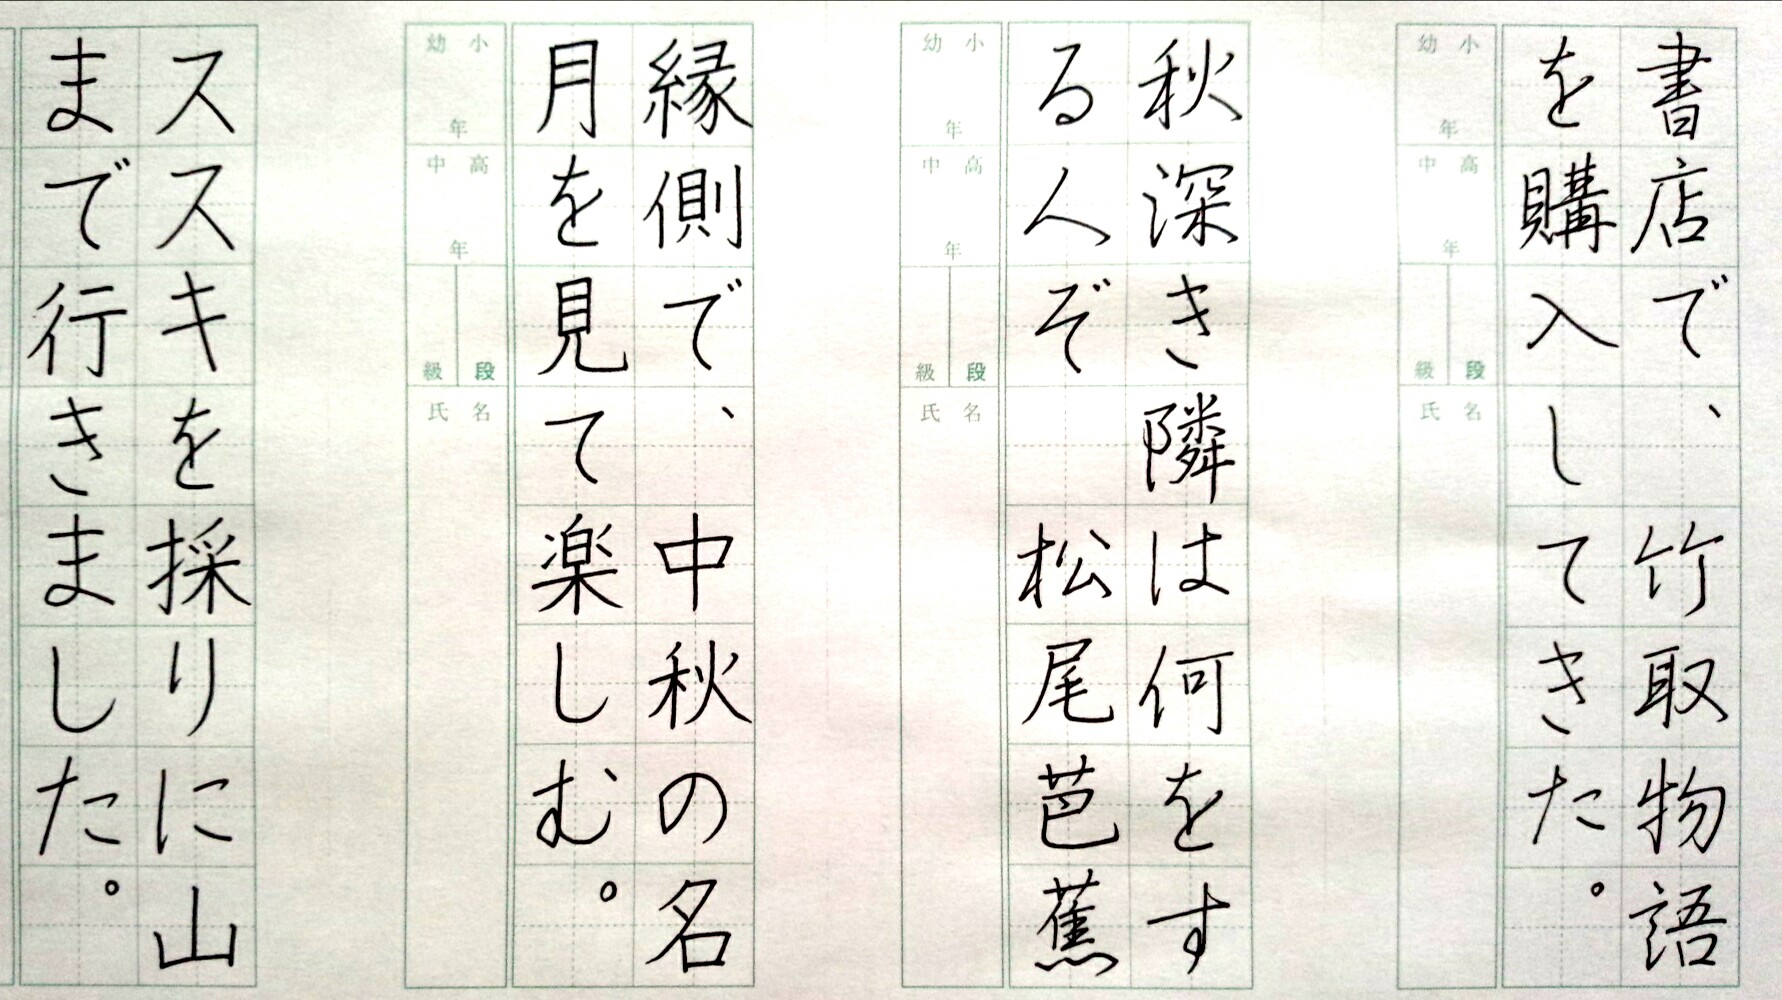 書店で、竹取物語
を購入してきた。
小
幼
年
高
中
年
段
級
名
氏
秋深き隣は何をす
る人ぞ 松尾芭蕉
小
幼
年
高
中
年
段
級
名
氏
縁側で、中秋の名
月を見て楽しむ。
小
幼
年
高
中
年
段
級
名
氏
ススキを採りに山
まで行きました。